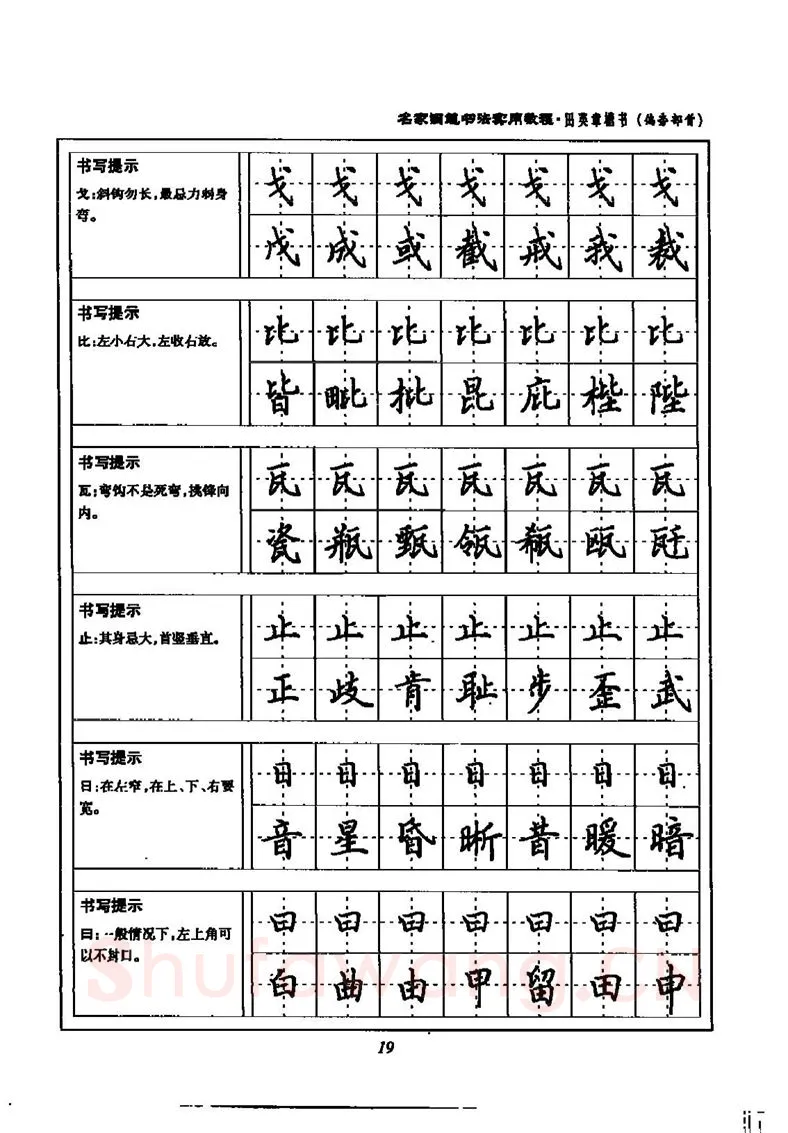 名家钢笔书法实用教程·田英章楷书(偏旁部首)
书写提示
戈:斜钩勿长,最忌力刺身
弯。
戈戈戈戈戈戈戈
戊成或截戒我裁
书写提示
比:左小右大,左收右放。
比比比比比比比
皆毗批昆庇梐陛
书写提示
瓦:弯钩不是死弯,挑锋向
内。
瓦瓦瓦瓦瓦瓦瓦
瓷瓶甄瓴瓻瓯瓩
书写提示
止:其身忌大,首竖垂直。
止止止止止止止
正歧肯耻步歪武
书写提示
日:在左窄,在上、下、右要
宽。
日日日日日日日
音星昏晰昔暖暗
书写提示
曰:一般情况下,左上角可
以不封口。
曰曰曰曰曰曰曰
白曲由甲留田申
Shufawang.CN
19